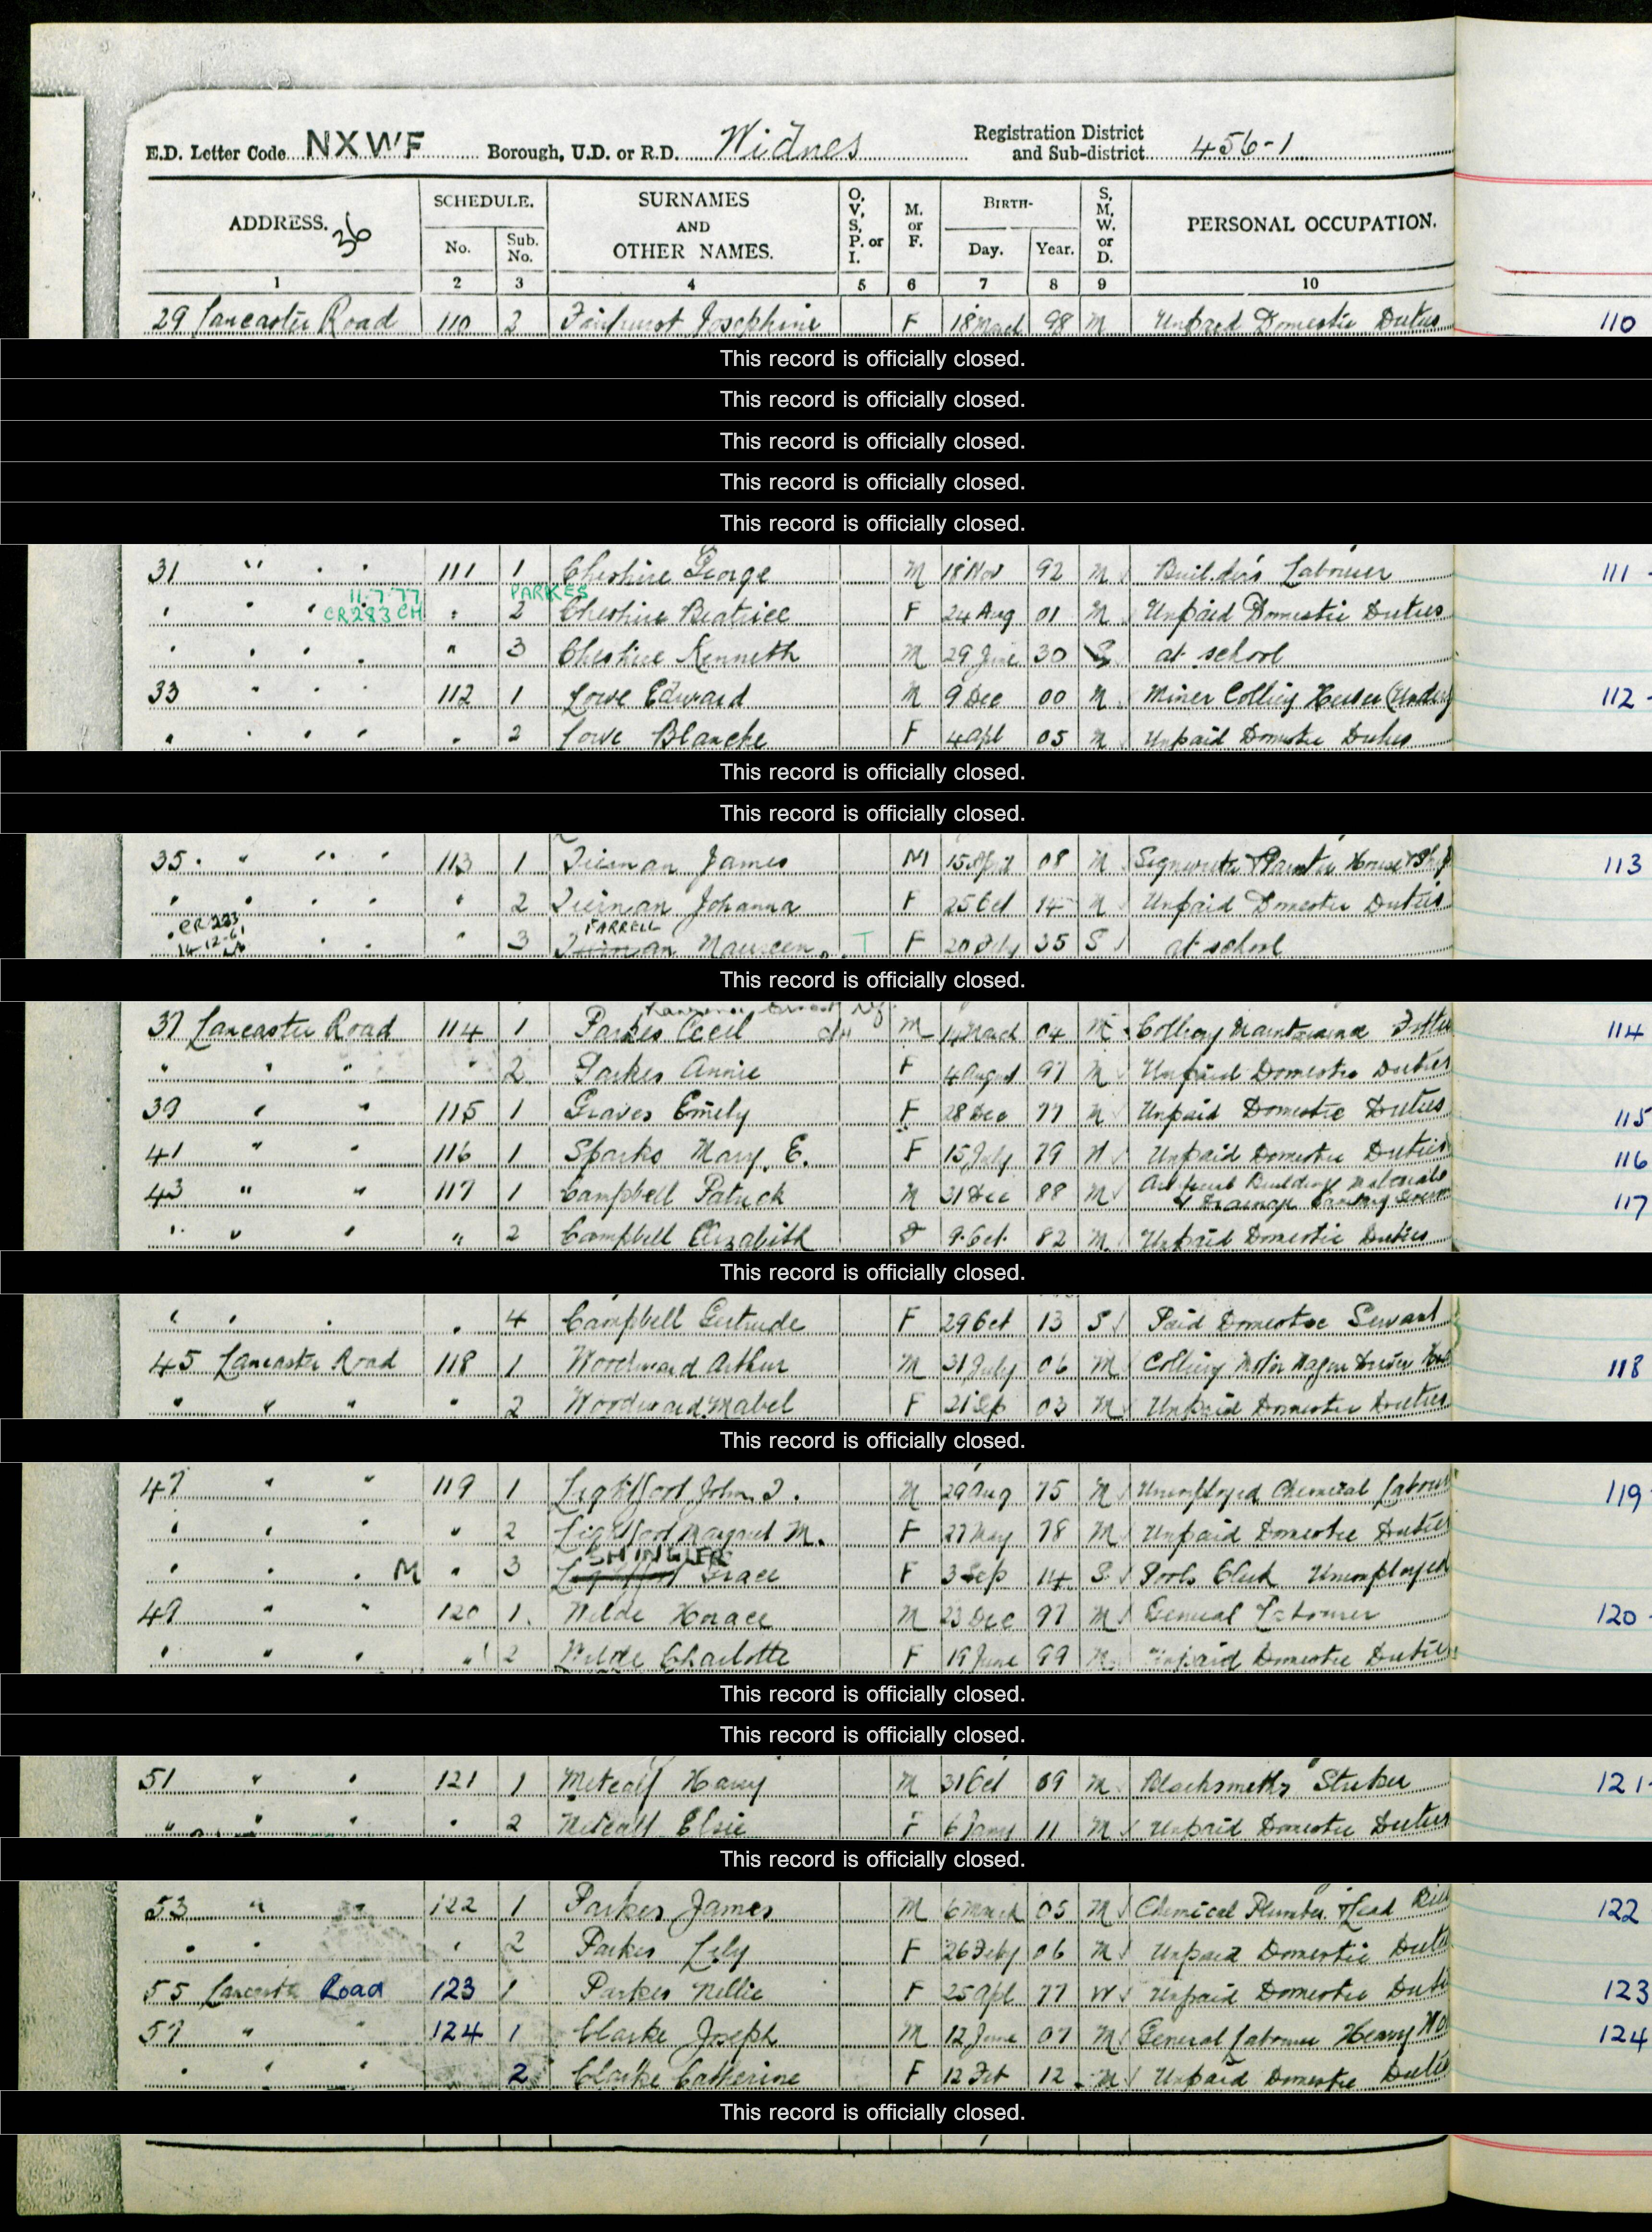 E.D. Letter Code NXWF Borough, U.D. or R.D. Widnes Registration District and Sub-district 456-1
ADDRESS. 36 SCHEDULE. No. Sub. No. SURNAMES AND OTHER NAMES. O, V, S, P. or I. M. or F. BIRTH- Day. Year. S, M, W. or D. PERSONAL OCCUPATION.
1 2 3 4 5 6 7 8 9 10
29 Lancaster Road 110 2 Fairhurst Josephine F 18 March 98 M Unpaid Domestic Duties 110
This record is officially closed.
This record is officially closed.
This record is officially closed.
This record is officially closed.
This record is officially closed.
31 " " " 111 1 Cheshire George M 18 Nov 92 M Builders Labourer 111
11.7.77 PARKES
" " " CR283 CH " 2 Cheshire Beatrice F 24 Aug 01 M Unpaid Domestic Duties
" " " " 3 Cheshire Kenneth M 29 June 30 S at school
33 " " " 112 1 Lowe Edward M 9 Dec 00 M Miner Colliery Hewer (Underg 112
" " " " 2 Lowe Blanche F 4 Apl 05 M Unpaid Domestic Duties
This record is officially closed.
This record is officially closed.
35 " " " 113 1 Tiernan James M 15 Apl 08 M Signwriter Painter House & Ship 113
" " " " 2 Tiernan Johanna F 25 Oct 14 M Unpaid Domestic Duties
CR 283 14-12-61 FARRELL
" " " " 3 Tiernan Maureen T F 20 Feby 35 S at school
This record is officially closed.
37 Lancaster Road 114 1 Parkes Cecil M 14 March 04 M Colliery Maintenance Fitter 114
" " " " 2 Parkes Annie F 4 August 97 M Unpaid Domestic Duties
39 " " 115 1 Graves Emily F 28 Dec 77 M Unpaid Domestic Duties 115
41 " " 116 1 Sparks Mary. E. F 15 July 79 Unpaid Domestic Duties 116
43 " " 117 1 Campbell Patrick M 31 Dec 88 M Building Materials & Drainage 117
" " " " 2 Campbell Elizabeth F 9 Oct 82 M Unpaid Domestic Duties
This record is officially closed.
" " " " 4 Campbell Gertrude F 29 Oct 13 S Paid Domestic Servant
45 Lancaster Road 118 1 Woodward Arthur M 31 July 06 M Colliery Motor Wagon Driver 118
" " " " 2 Woodward Mabel F 21 Sep 03 M Unpaid Domestic Duties
This record is officially closed.
47 " " 119 1 Lightfoot John J. M 29 Aug 75 M Unemployed Chemical Labour 119
" " " " 2 Lightfoot Margaret M. F 27 May 78 M Unpaid Domestic Duties
SHINGLER
" " " M " 3 Lightfoot Grace F 3 Sep 14 S Pools Clerk Unemployed
49 " " 120 1 Wilde Horace M 23 Dec 97 M General Labourer 120
" " " " 2 Wilde Charlotte F 19 June 99 M Unpaid Domestic Duties
This record is officially closed.
This record is officially closed.
51 " " 121 1 Metcalf Harry M 31 Oct 09 M Blacksmiths Striker 121
" " " " 2 Metcalf Elsie F 6 Jany 11 M Unpaid Domestic Duties
This record is officially closed.
53 " 122 1 Parkes James M 6 March 05 M Chemical Plumber Lead 122
" " " 2 Parkes Lily F 26 Feby 06 M Unpaid Domestic Duties
55 Lancaster Road 123 1 Parkes Nellie F 25 Apl 77 W Unpaid Domestic Duti 123
57 " " 124 1 Clarke Joseph M 12 June 07 M General Labourer Heavy Wo 124
" " " 2 Clarke Catherine F 12 Feb 12 M Unpaid Domestic Duties
This record is officially closed.